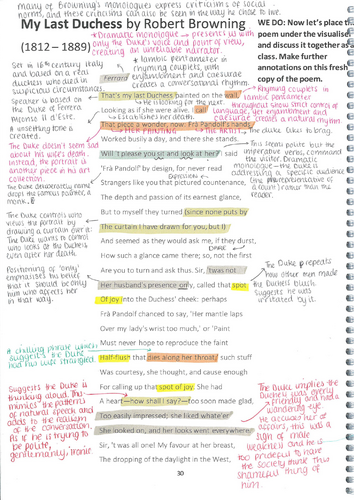 many of Browning's monologues express criticisms of social
norms, and these criticisms can be seen in the way he chose to
My Last Duchess by Robert Browning
(1812 – 1889)
*Dramatic monologue → presents us with
only the Duke's voice and point of view,
creating an unreliable narrator.
WE DO: Now let's place th
poem under the visualise
and discuss it together as
class. Make further
annotations on this fresh
copy of the poem.
Set in 16th century Italy
and based on a real
duchess who died in
suspicious circumstances.
Speaker is based on
the Duke of Ferrara
Alfonso II d'Este.
* unsettling tone is
created.
*Iambic pentameter in
rhyming couplets with
enjambment and caesurae
creates a conversational rhythm.
Ferrara
That's my last Duchess painted on the wall,
He is looking for the next.
Looking as if she were alive. I call
Establishes her death.
That piece a wonder, now: Frà Pandolf's hands
HER PAINTING
THE ARTIST
Worked busily a day, and there she stands.
Will 't please you sit and look at her? I said
'Frà Pandolf' by design, for never read
Strangers like you that pictured countenance,
The depth and passion of its earnest glance,
But to myself they turned (since none puts by
The curtain I have drawn for you, but I)
And seemed as they would ask me, if they durst,
DARE
How such a glance came there; so, not the first
Are you to turn and ask thus. Sir, 'twas not
Her husband's presence only, called that spot
Of joy into the Duchess' cheek: perhaps
Frà Pandolf chanced to say, 'Her mantle laps
Over my lady's wrist too much,' or 'Paint
Must never hope to reproduce the faint
Half-flush that dies along her throat;' such stuff
Was courtesy, she thought, and cause enough
For calling up that spot of joy. She had
A heart—how shall I say?—too soon made glad,
Too easily impressed; she liked whate'er
She looked on, and her looks went everywhere.
Sir, 'twas all one! My favour at her breast,
The dropping of the daylight in the West,
*Rhyming couplets in
iambic pentameter
throughout show strict control of
the Duchess. Her enjambment and
caesurae create a natural rhythm.
The Duke likes to brag.
*This seems polite but the
imperative verbs command
the visitor. Dramatic
monologue - the Duke is
addressing a specific audience
(the representative of
a Count) rather than the
reader.
The Duke doesn't seem sad
about his wife's death.
Instead, the portrait is
another piece in his art
collection.
The Duke deliberately name
drops the famous painter, a
monk.
The Duke controls who
views the portrait by
drawing a curtain over it.
The Duke wants to control
who looks at the Duchess
even after her death.
Positioning of 'only'
emphasises his belief
that it should be only
him who affects her
in that way.
The Duke repeats
how other men made
the Duchess blush.
Suggests he was
irritated by it.
A chilling phrase which
suggests the Duke
had his wife strangled.
Suggests the Duke is
thinking aloud. This
mimics the patterns
of natural speech and
adds to the realism
of the conversation.
As if he is trying to
be polite,
gentlemanly, ironic.
The Duke implies the
Duchess was overly
friendly and had a
wandering eye.
He accuses her of
affairs, this was a
sign of male
weakness and he is
too prideful to have
the society think this
shameful thing of
him.
30